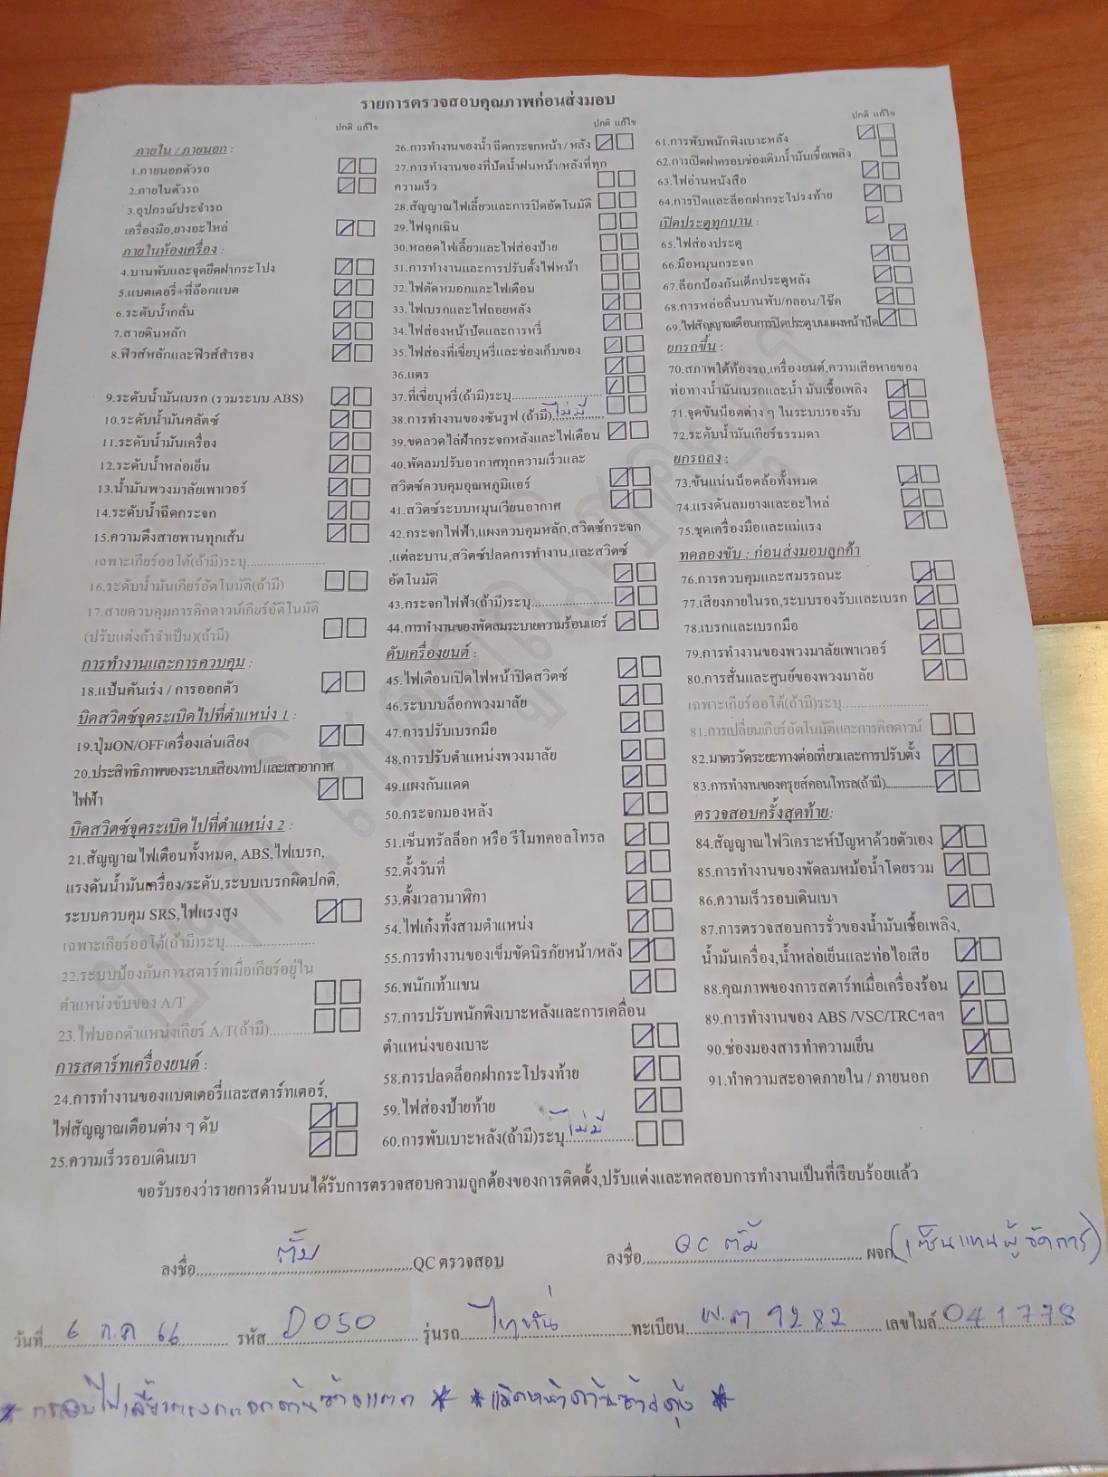 รายการตรวจสอบคุณภาพก่อนส่งมอบ
ปกติ แก้ไข
ภายใน / ภายนอก :
1.ภายนอกตัวรถ
2.ภายในตัวรถ
3.อุปกรณ์ประจำรถ
เครื่องมือ,ยางอะไหล่
ภายในห้องเครื่อง :
4.บานพับและจุดยึดฝากระโปง
5.แบตเตอรี่+ที่ล๊อกแบต
6.ระดับน้ำกลั่น
7.สายดินหลัก
8.ฟิวส์หลักและฟิวส์สำรอง
9.ระดับน้ำมันเบรก (รวมระบบ ABS)
10.ระดับน้ำมันคลัตซ์
11.ระดับน้ำมันเครื่อง
12.ระดับน้ำหล่อเย็น
13.น้ำมันพวงมาลัยเพาเวอร์
14.ระดับน้ำฉีดกระจก
15.ความตึงสายพานทุกเส้น
เฉพาะเกียร์ออโต้(ถ้ามี)ระบุ
16.ระดับน้ำมันเกียร์อัตโนมัติ(ถ้ามี)
17.สายควบคุมการคิกดาวน์เกียร์อัตโนมัติ
(ปรับแต่งถ้าจำเป็น)(ถ้ามี)
การทำงานและการควบคุม :
18.แป้นคันเร่ง / การออกตัว
บิดสวิตซ์จุดระเบิดไปที่ตำแหน่ง 1 :
19.ปุ่มON/OFFเครื่องเล่นเสียง
20.ประสิทธิภาพของระบบเสียง/เทปและเสาอากาศ
ไฟฟ้า
บิดสวิตซ์จุดระเบิดไปที่ตำแหน่ง 2 :
21.สัญญาณไฟเตือนทั้งหมด, ABS,ไฟเบรก,
แรงดันน้ำมันเครื่อง/ระดับ,ระบบเบรกผิดปกติ,
ระบบควบคุม SRS,ไฟแรงสูง
เฉพาะเกียร์ออโต้(ถ้ามี)ระบุ
22.ระบบป้องกันการสตาร์ทเมื่อเกียร์อยู่ใน
ตำแหน่งขับของ A/T
23.ไฟบอกตำแหน่งเกียร์ A/T(ถ้ามี)
การสตาร์ทเครื่องยนต์ :
24.การทำงานของแบตเตอรี่และสตาร์ทเตอร์,
ไฟสัญญาณเตือนต่าง ๆ ดับ
25.ความเร็วรอบเดินเบา
ปกติ แก้ไข
26.การทำงานของน้ำฉีดกระจกหน้า / หลัง
27.การทำงานของที่ปัดน้ำฝนหน้า/หลังที่ทุก
ความเร็ว
28.สัญญาณไฟเลี้ยวและการปิดอัตโนมัติ
29.ไฟฉุกเฉิน
30.หลอดไฟเลี้ยวและไฟส่องป้าย
31.การทำงานและการปรับตั้งไฟหน้า
32.ไฟตัดหมอกและไฟเตือน
33.ไฟเบรกและไฟถอยหลัง
34.ไฟส่องหน้าปัดและการหรี่
35.ไฟส่องที่เขี่ยบุหรี่และช่องเก็บของ
36.แตร
37.ที่เขี่ยบุหรี่(ถ้ามี)ระบุ
38.การทำงานของซันรูฟ (ถ้ามี) ไม่มี
39.ขดลวดไล่ฝ้ากระจกหลังและไฟเตือน
40.พัดลมปรับอากาศทุกความเร็วและ
สวิตช์ควบคุมอุณหภูมิแอร์
41.สวิตซ์ระบบหมุนเวียนอากาศ
42.กระจกไฟฟ้า,แผงควบคุมหลัก,สวิตซ์กระจก
,แต่ละบาน,สวิตซ์ปลดการทำงาน,และสวิตซ์
อัตโนมัติ
43.กระจกไฟฟ้า(ถ้ามี)ระบุ
44.การทำงานของพัดลมระบายความร้อนแอร์
ดับเครื่องยนต์ :
45.ไฟเตือนเปิดไฟหน้าปิดสวิตซ์
46.ระบบบล็อกพวงมาลัย
47.การปรับเบรกมือ
48.การปรับตำแหน่งพวงมาลัย
49.แผงกันแดด
50.กระจกมองหลัง
51.เซ็นทรัลล็อก หรือ รีโมทคอลโทรล
52.ตั้งวันที่
53.ตั้งเวลานาฬิกา
54.ไฟเก๋งทั้งสามตำแหน่ง
55.การทำงานของเข็มขัดนิรภัยหน้า/หลัง
56.พนักเท้าแขน
57.การปรับพนักพิงเบาะหลังและการเคลื่อน
ตำแหน่งของเบาะ
58.การปลดล็อกฝากระโปรงท้าย
59.ไฟส่องป้ายท้าย
60.การพับเบาะหลัง(ถ้ามี)ระบุ ไม่มี
ปกติ แก้ไข
61.การพับพนักพิงเบาะหลัง
62.การเปิดฝาครอบช่องเติมน้ำมันเชื้อเพลิง
63.ไฟอ่านหนังสือ
64.การปิดและล็อกฝากระโปรงท้าย
เปิดประตูทุกบาน :
65.ไฟส่องประตู
66.มือหมุนกระจก
67.ล็อกป้องกันเด็กประตูหลัง
68.การหล่อลื่นบานพับ/กลอน/โช๊ค
69.ไฟสัญญาณเตือนการปิดประตูบนแผงหน้าปัด
ยกรถขึ้น :
70.สภาพใต้ท้องรถ,เครื่องยนต์,ความเสียหายของ
ท่อทางน้ำมันเบรกและน้ำมันเชื้อเพลิง
71.จุดขันน๊อตต่าง ๆ ในระบบรองรับ
72.ระดับน้ำมันเกียร์ธรรมดา
ยกรถลง :
73.ขันแน่นน็อตล้อทั้งหมด
74.แรงดันลมยางและอะไหล่
75.ชุดเครื่องมือและแม่แรง
ทดลองขับ : ก่อนส่งมอบลูกค้า
76.การควบคุมและสมรรถนะ
77.เสียงภายในรถ,ระบบรองรับและเบรก
78.เบรกและเบรกมือ
79.การทำงานของพวงมาลัยเพาเวอร์
80.การสั่นและศูนย์ของพวงมาลัย
เฉพาะเกียร์ออโต้(ถ้ามี)ระบุ
81.การเปลี่ยนเกียร์อัตโนมัติและการคิกดาวน์
82.มาตรวัดระยะทางต่อเที่ยวและการปรับตั้ง
83.การทำงานของครุยส์คอนโทรล(ถ้ามี)
ตรวจสอบครั้งสุดท้าย:
84.สัญญาณไฟวิเคราะห์ปัญหาด้วยตัวเอง
85.การทำงานของพัดลมหม้อน้ำโดยรวม
86.ความเร็วรอบเดินเบา
87.การตรวจสอบการรั่วของน้ำมันเชื้อเพลิง,
น้ำมันเครื่อง,น้ำหล่อเย็นและท่อไอเสีย
88.คุณภาพของการสตาร์ทเมื่อเครื่องร้อน
89.การทำงานของ ABS /VSC/TRCฯลฯ
90.ช่องมองสารทำความเย็น
91.ทำความสะอาดภายใน / ภายนอก
ขอรับรองว่ารายการด้านบนได้รับการตรวจสอบความถูกต้องของการติดตั้ง,ปรับแต่งและทดสอบการทำงานเป็นที่เรียบร้อยแล้ว
ลงชื่อ QC ตรวจสอบ ลงชื่อ QC ผจก (เซ็นแทนผู้จัดการ)
วันที่ 6 ก.ค 66 รหัส D050 รุ่นรถ ไททัน ทะเบียน 9282 เลขไมล์ 041778